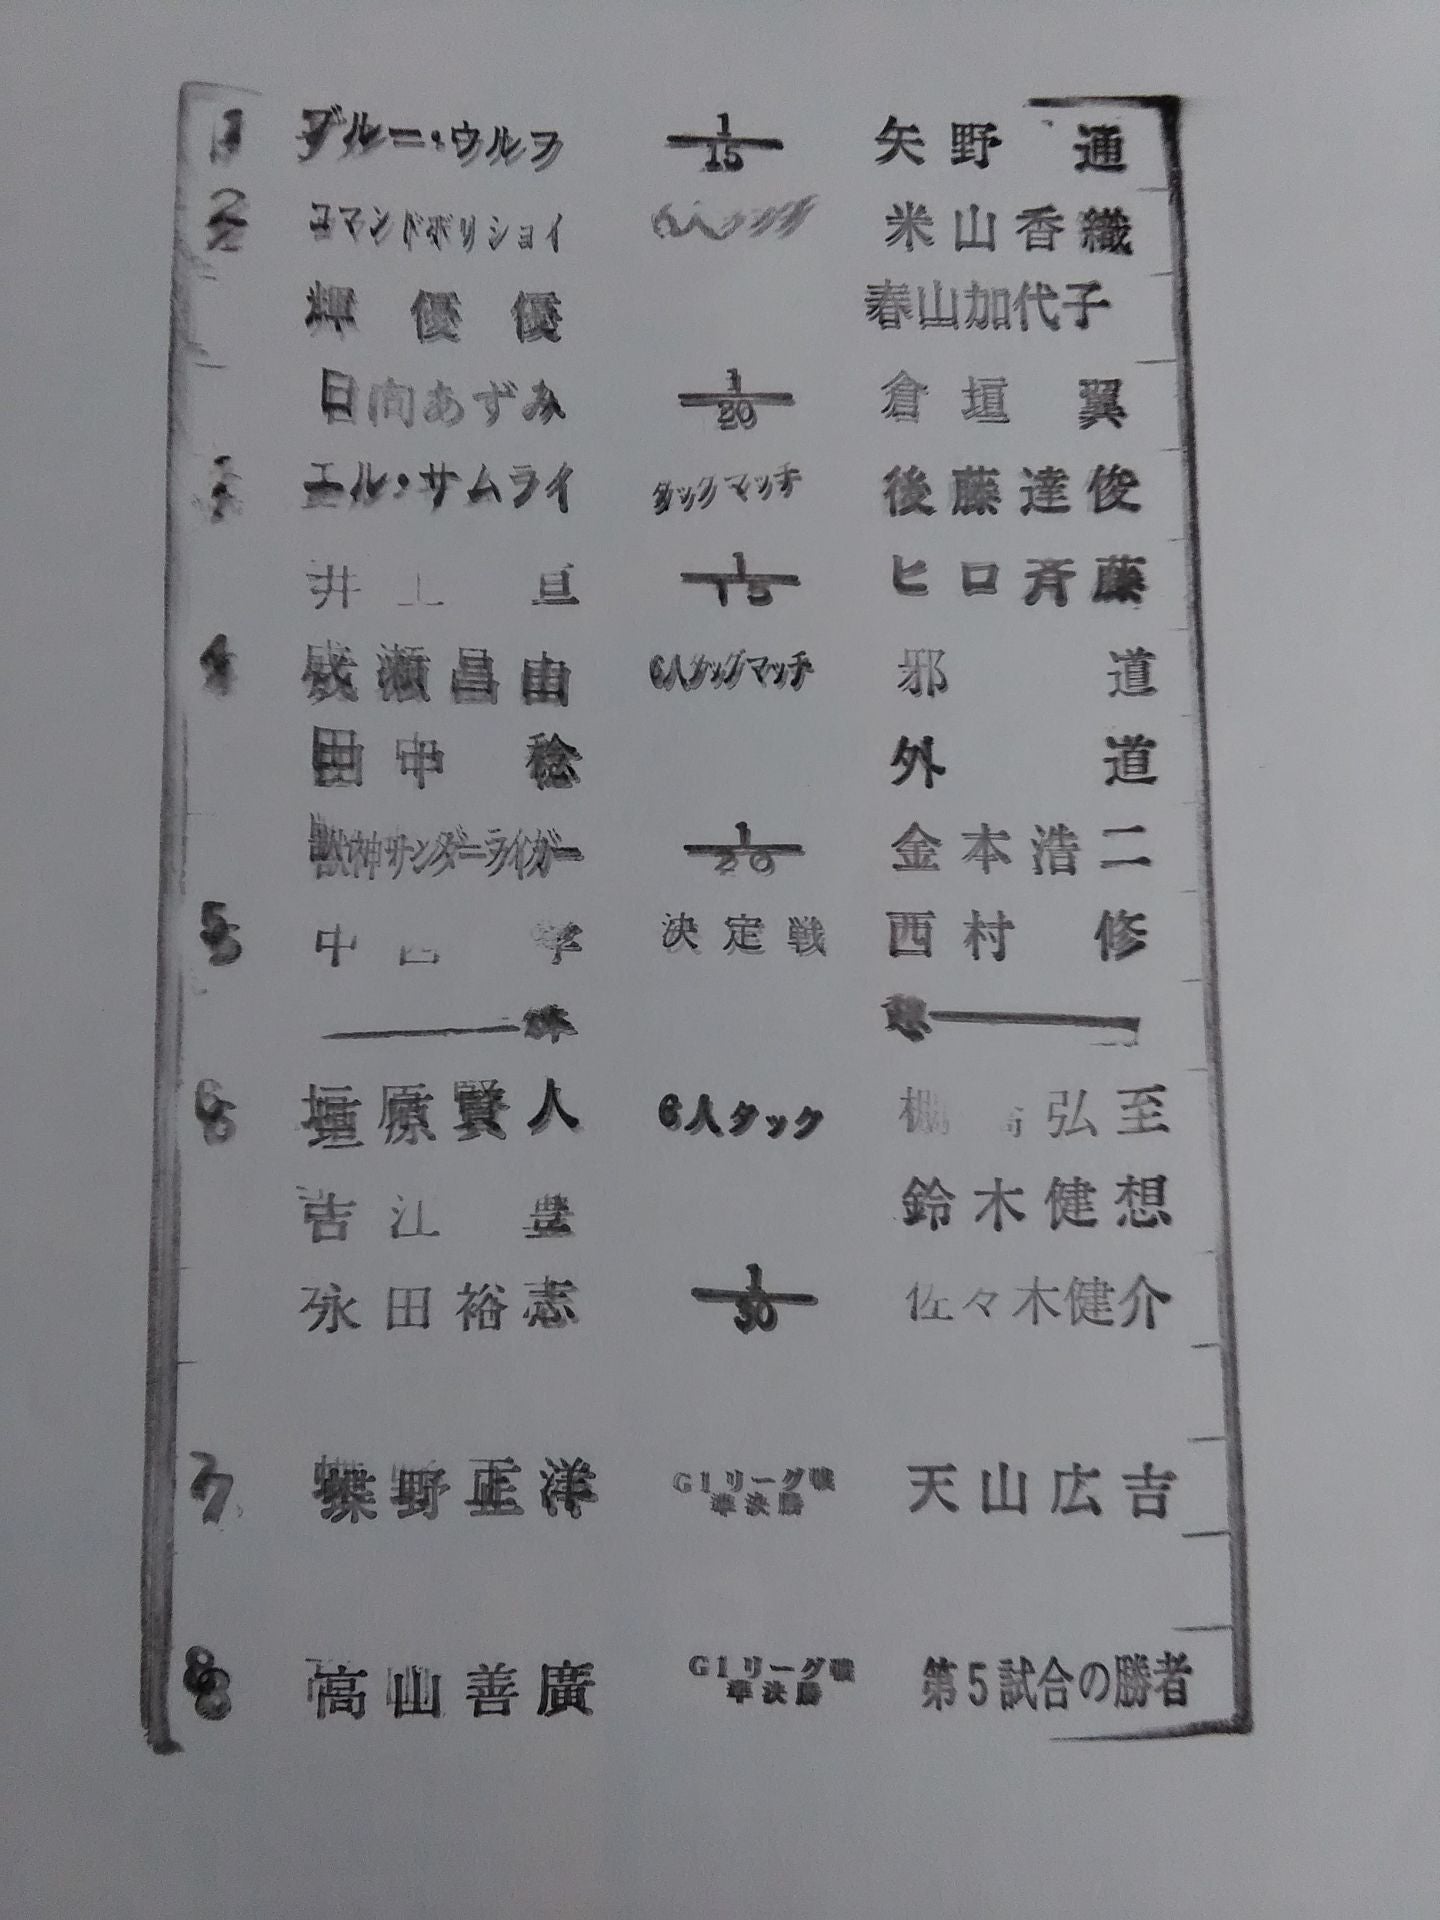 1 ブルー・ウルフ 1/15 矢野 通
2 コマンドボリショイ 6人タッグ 米山香織
輝 優優 春山加代子
日向あずみ 1/20 倉垣 翼
エル・サムライ タッグマッチ 後藤達俊
井上 亘 1/15 ヒロ斉藤
4 成瀬昌由 6人タッグマッチ 邪道
田中 稔 外道
獣神サンダーライガー 1/20 金本浩二
5 中西 学 決定戦 西村 修
休 憩
6 垣原賢人 6人タッグ 棚橋弘至
吉江 豊 鈴木健想
永田裕志 1/30 佐々木健介
7 蝶野正洋 G1リーグ戦 準決勝 天山広吉
8 高山善廣 G1リーグ戦 準決勝 第5試合の勝者